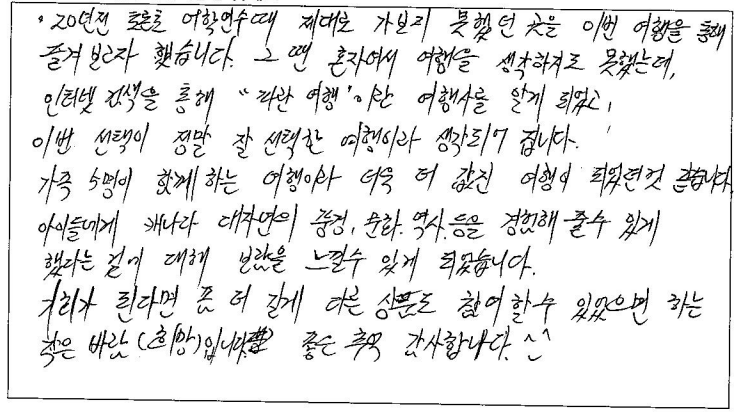 · 20년전 토론토 어학연수때 제대로 가보지 못했던 곳을 이번 여행을 통해
즐겨보고자 했습니다. 그 땐 혼자여서 여행을 생각하지도 못했는데,
인터넷 검색을 통해 "파란 여행"이란 여행사를 알게 되었고,
이번 선택이 정말 잘 선택한 여행이라 생각되어 집니다.
가족 5명이 함께 하는 여행이라 더욱 더 값진 여행이 되었던것 같습니다.
아이들에게 캐나다 대자연의 풍경, 문화. 역사.등을 경험해 줄수 있게
했다는 점에 대해 보람을 느낄수 있게 되었습니다.
기회가 된다면 좀 더 길게 다른 상품도 참여 할수 있었으면 하는
작은 바람(희망)입니다. 좋은 추억 감사합니다.^^